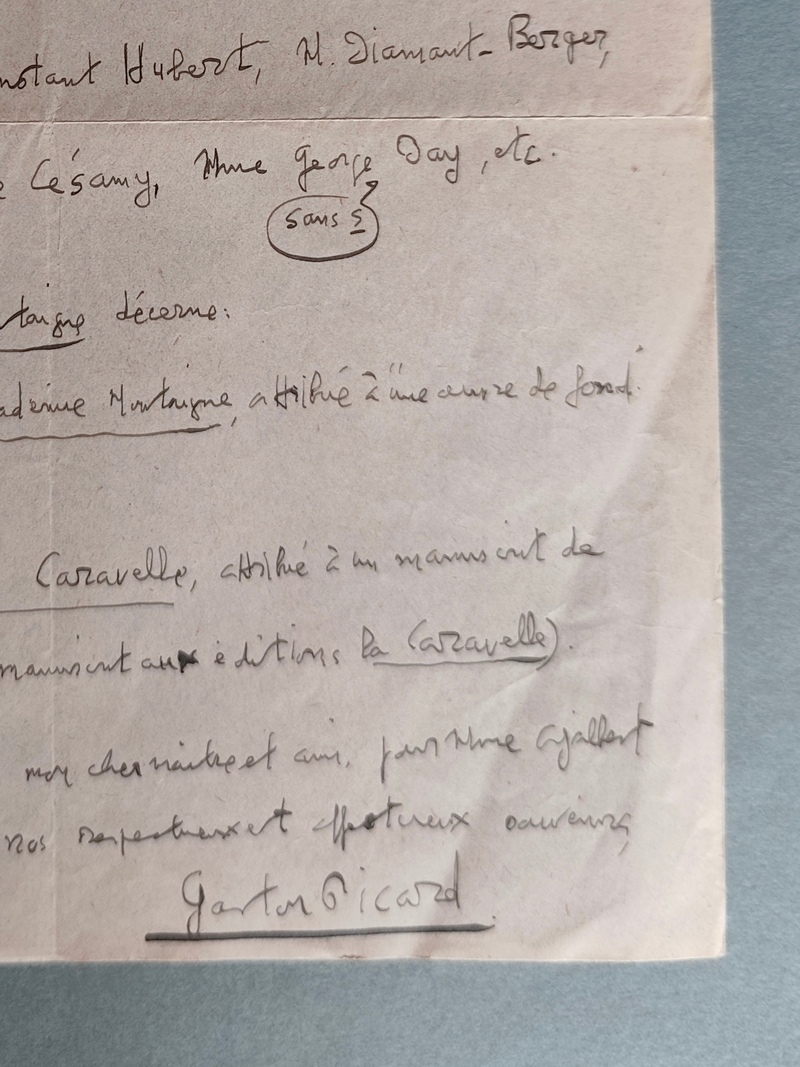 nstant Hubert, M. Diamant-Berger,
e Césamy, Mme George Day, etc.
sans s
taigne décerne:
adémie Montaigne, attribué à une œuvre de fond.
Caravelle, attribué à un manuscrit de
manuscrit aux éditions la Caravelle).
mon cher maître et ami, pour Mme Ajalbert
nos respectueux et affectueux souvenirs,
Gaston Picard